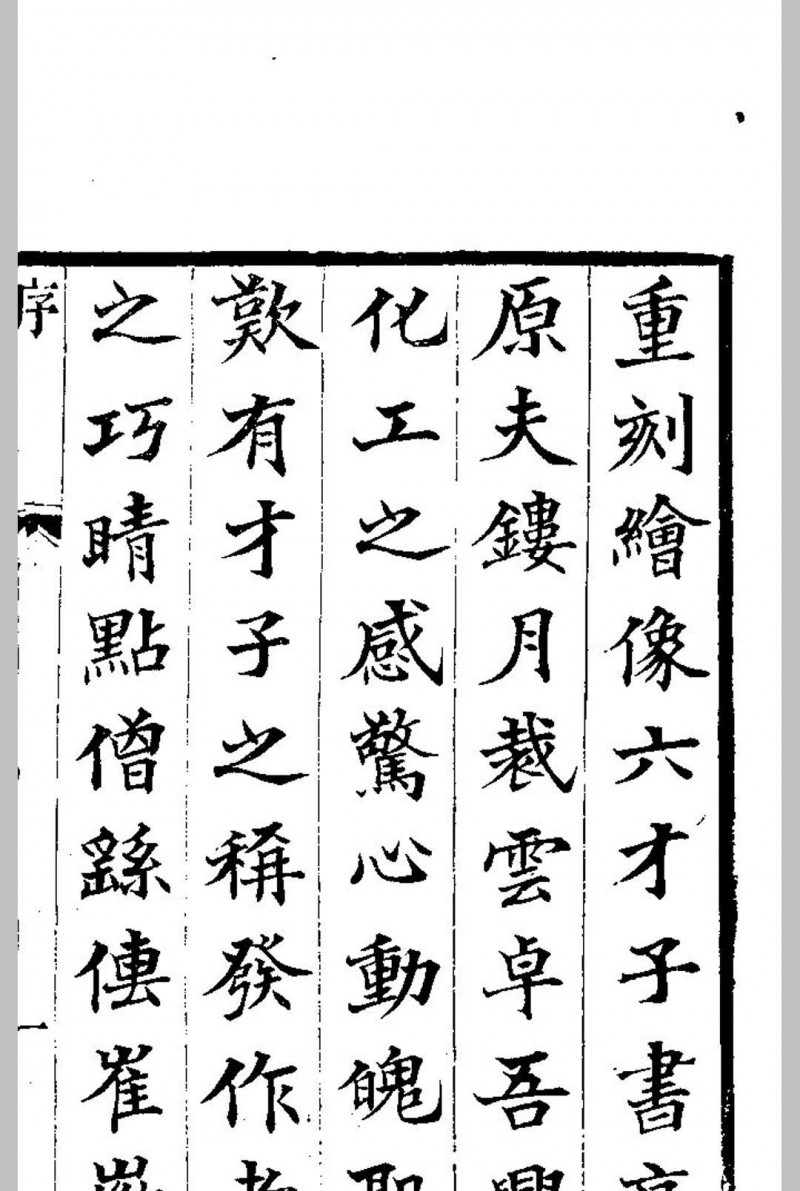 重刻繪像六才子書
原夫鏤月裁雲卓吾
化工之感驚心動魄
歎有才子之稱發作
之巧睛點僧繇傳崔
序
一